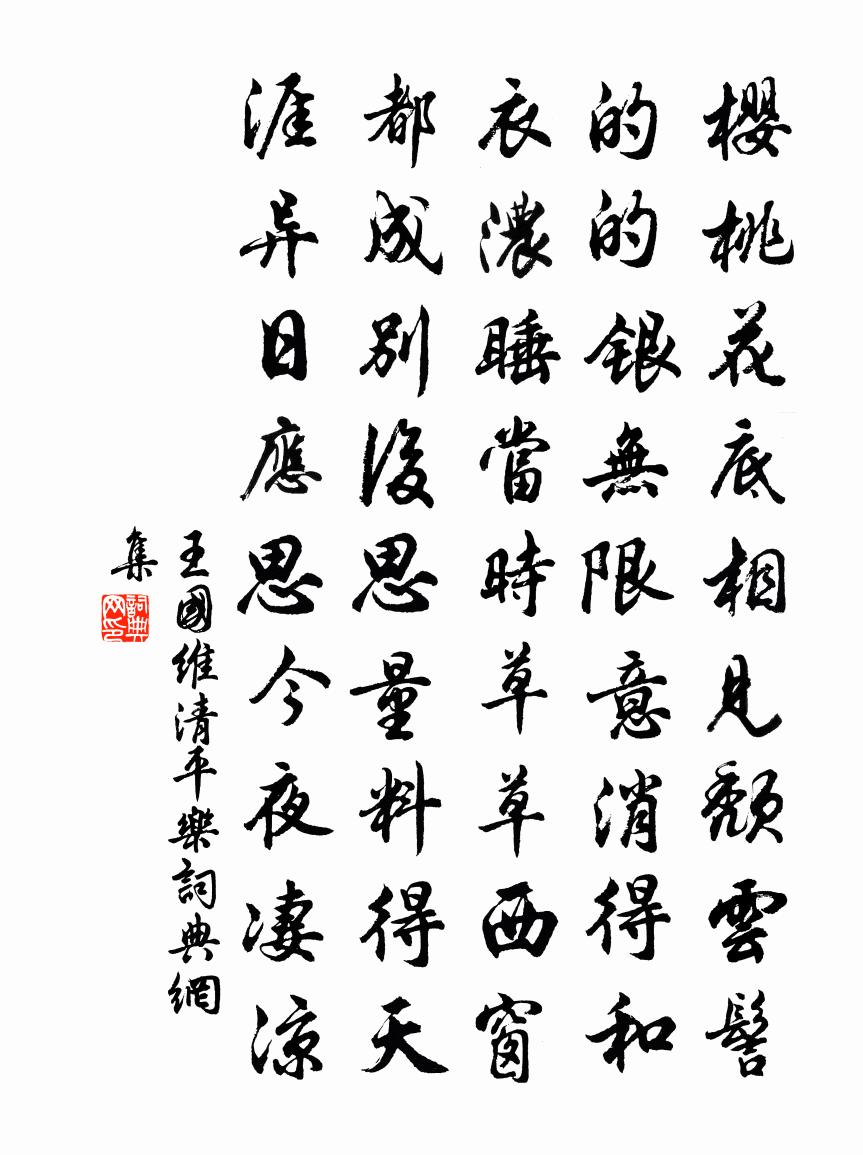 櫻桃花底相見頹雲髻
的的銀無限意消得和
衣濃睡當時草草西窗
都成別後思量料得天
涯异日應思今夜凄涼
王國維清平樂詞典網
集
詞典网印